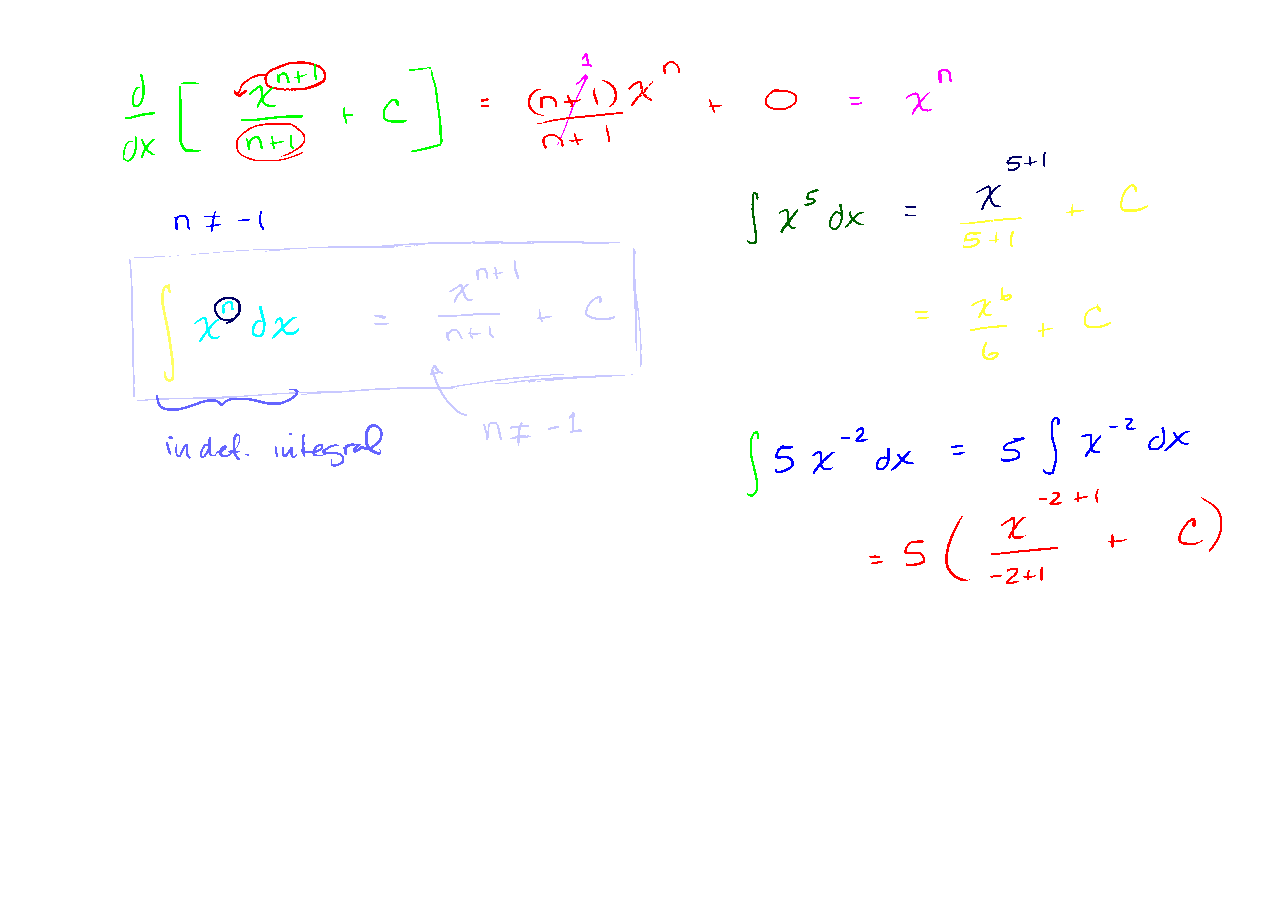 d/dx [ x^(n+1)/(n+1) + C ] = (n+1)x^n/(n+1) 1 + 0 = x^n
n ≠ -1
∫ x^n dx = x^(n+1)/(n+1) + C
n ≠ -1
indef. integral
∫ x^5 dx = x^(5+1)/(5+1) + C
= x^6/6 + C
∫ 5 x^-2 dx = 5 ∫ x^-2 dx
= 5 ( x^(-2+1)/(-2+1) + C )